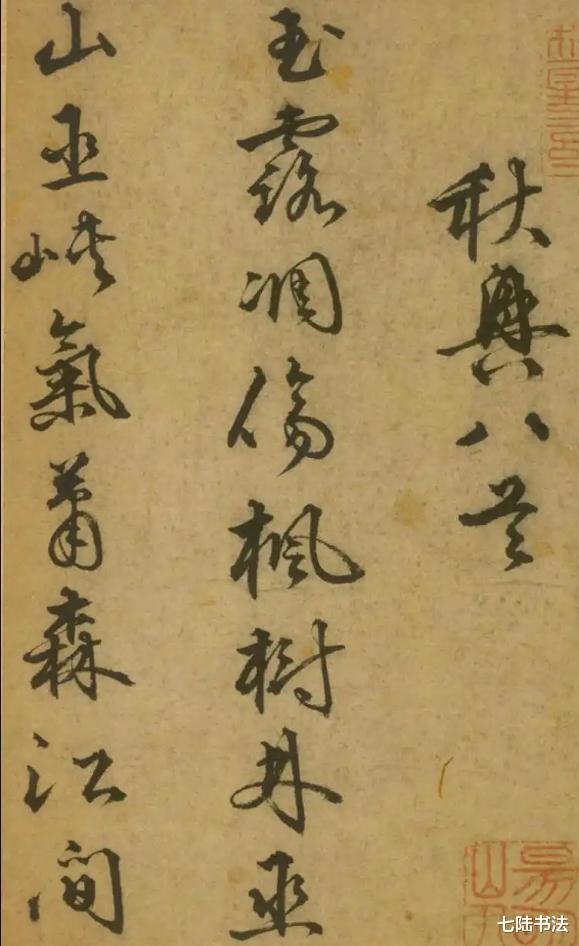 秋興八首
玉露凋傷楓樹林巫
山巫峽氣蕭森江間
七陆书法